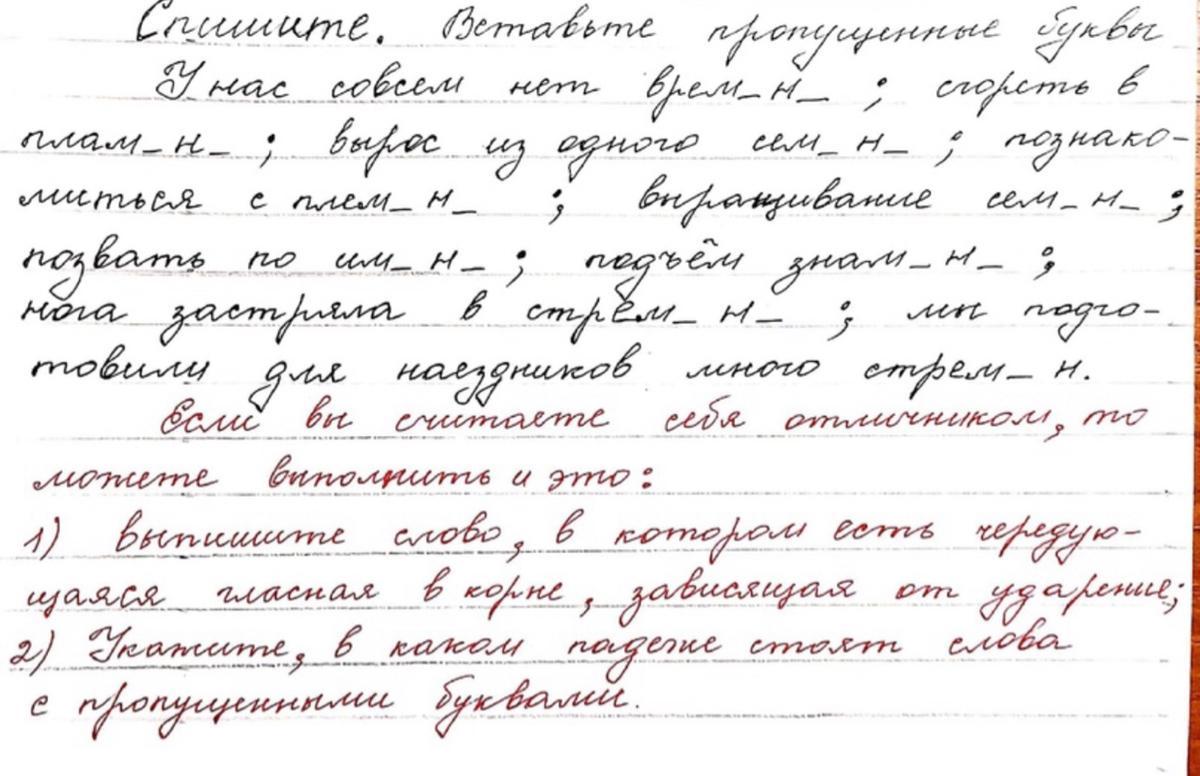 Спишите. Вставьте пропущенные буквы
У нас совсем нет врем_н_ ; сгореть в
плам_н_ ; вырос из одного сем_н_ ; познако-
миться с плем_н_ ; выращивание сем_н_ ;
позвать по им_н_ ; подъём знам_н_ ;
нога застряла в стрем_н_ ; мы подго-
товили для наездников много стрем_н.
Если вы считаете себя отличником, то
можете выполнить и это:
1) выпишите слово, в котором есть чередую-
щаяся гласная в корне, зависящая от ударение;
2) Укажите, в каком падеже стоят слова
с пропущенными буквами.